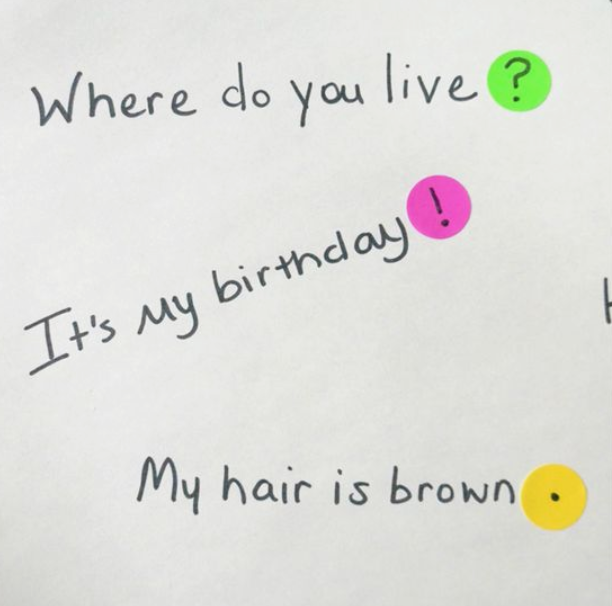 Where do you live?
It's my birthday!
My hair is brown.